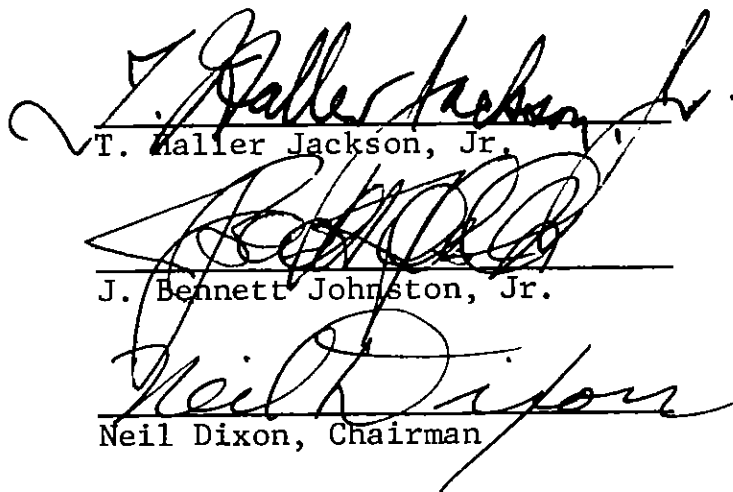 T. Haller Jackson, Jr.
T. Haller Jackson, Jr.
J. Bennett Johnston, Jr.
Neil Dixon
Neil Dixon, Chairman